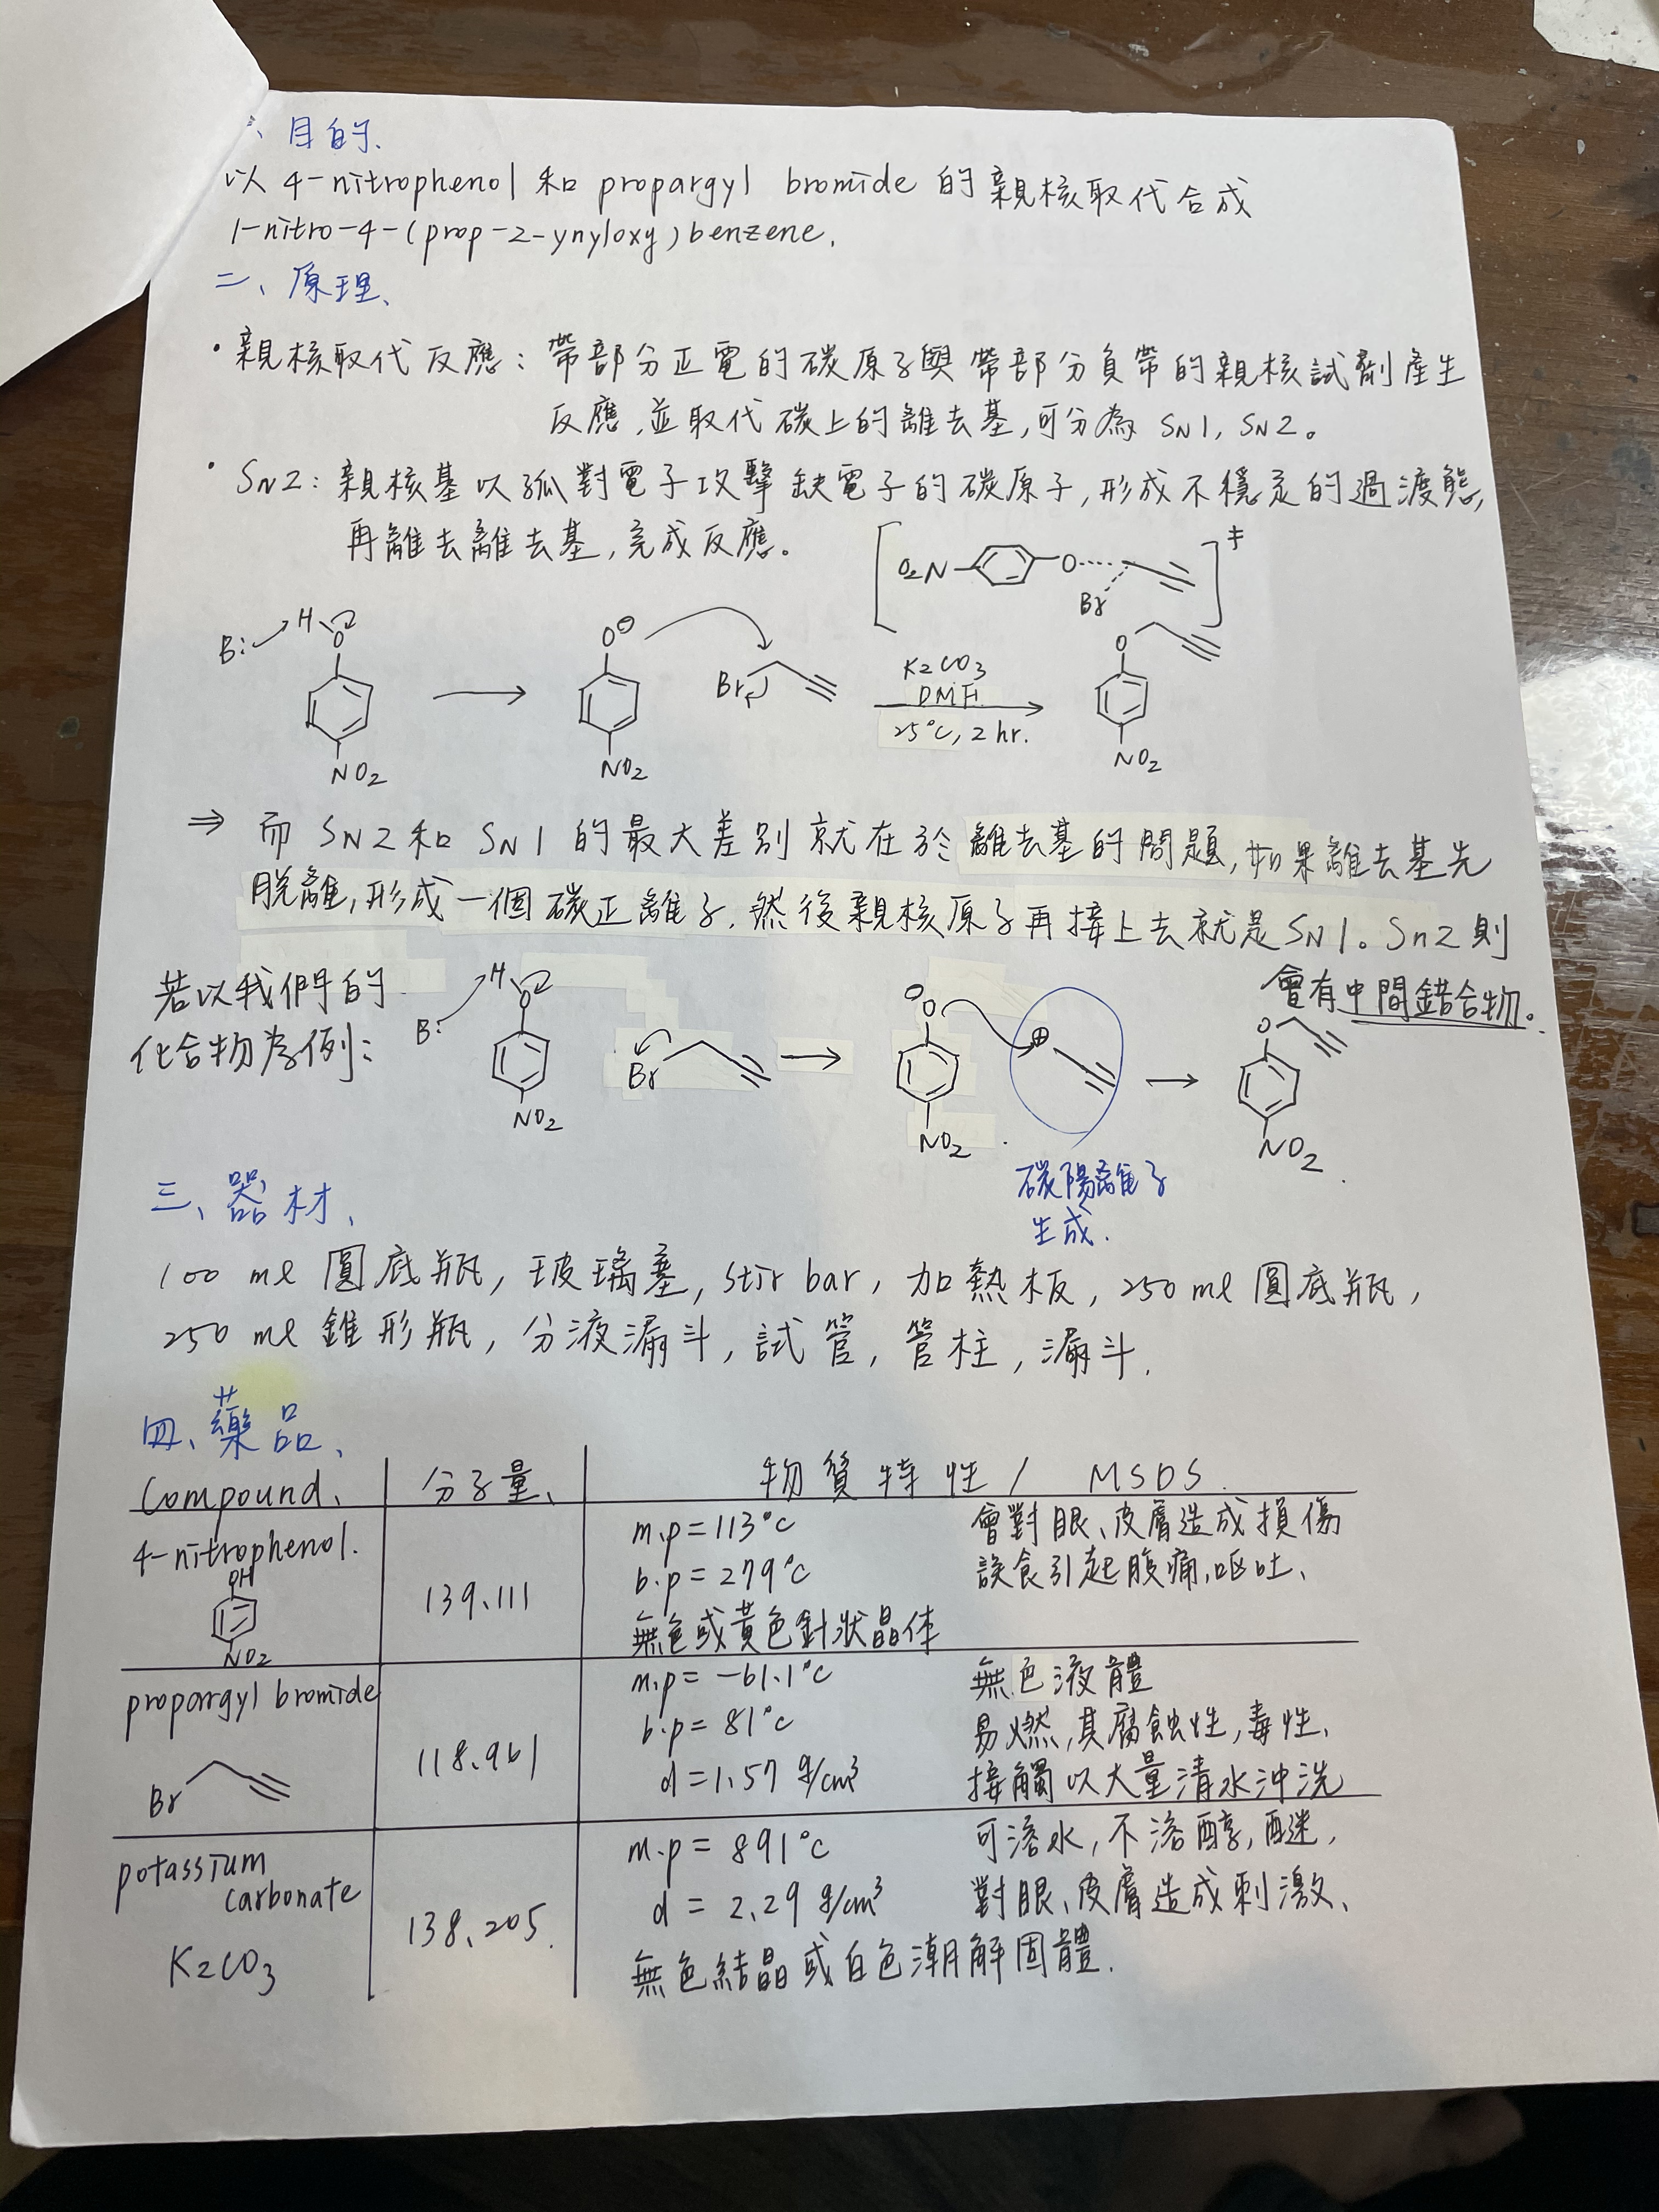 、目的、
以 4-nitrophenol 和 propargyl bromide 的親核取代合成
1-nitro-4-(prop-2-ynyloxy)benzene.
二、原理、
・親核取代反應：帶部分正電的碳原子與帶部分負帶的親核試劑產生
反應,並取代碳上的離去基,可分為 SN1, SN2。
・SN2：親核基以孤對電子攻擊缺電子的碳原子,形成不穩定的過渡態,
再離去離去基,完成反應。
O2N O Br ‡
B: H O NO2
O⊖ NO2
Br
K2CO3
DMF
25°C, 2 hr.
O NO2
⇒ 而 SN2 和 SN1 的最大差別就在於離去基的問題,如果離去基先
脫離,形成一個碳正離子,然後親核原子再接上去就是SN1。Sn2則
會有中間錯合物。
若以我們的
化合物為例：
B: H O NO2
Br
⊖O NO2
⊕
O NO2
碳陽離子
生成.
三、器材、
100 ml 圓底瓶, 玻璃塞, stir bar, 加熱板, 250 ml 圓底瓶,
250 ml 錐形瓶, 分液漏斗, 試管, 管柱, 漏斗.
四、藥品、
Compound、 分子量、 物質特性 / MSDS.
4-nitrophenol.
OH
NO2
139.111
m.p=113°C
b.p=279°C
無色或黃色針狀晶体
會對眼、皮膚造成損傷
誤食引起腹痛,嘔吐、
propargyl bromide
Br
118.961
m.p=-61.1°C
b.p=81°C
d=1.57 g/cm³
無色液體
易燃,具腐蝕性,毒性、
接觸以大量清水沖洗
potassium
carbonate
K2CO3
138.205.
m.p=891°C
d=2.29 g/cm³
無色結晶或白色潮解固體.
可溶水,不溶醇,醚,
對眼、皮膚造成刺激、